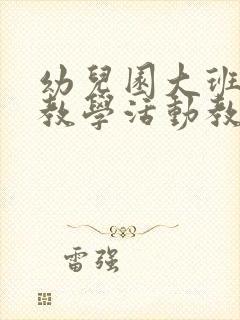 幼兒園大班
教學活動教
雷强